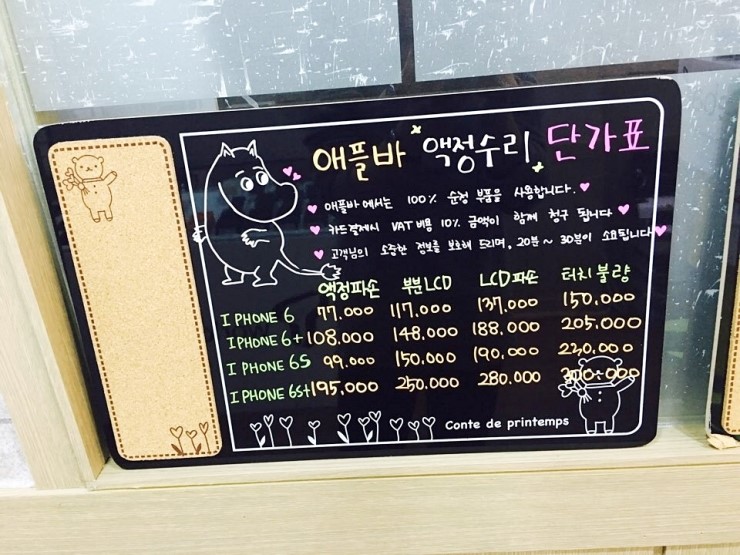 애플바 액정수리 단가표
애플바에서는 100% 순정 부품을 사용합니다.
카드결제시 VAT비용 10% 금액이 함께 청구 됩니다
고객님의 소중한 정보를 보호해 드리며, 20분~30분이 소요됩니다
액정파손 부분LCD LCD파손 터치불량
I PHONE 6 77.000 117.000 137.000 150.000
I PHONE 6+ 108.000 148.000 188.000 205.000
I PHONE 6S 99.000 150.000 190.000 220.000
I PHONE 6S+ 195.000 250.000 280.000 300.000
Conte de printemps